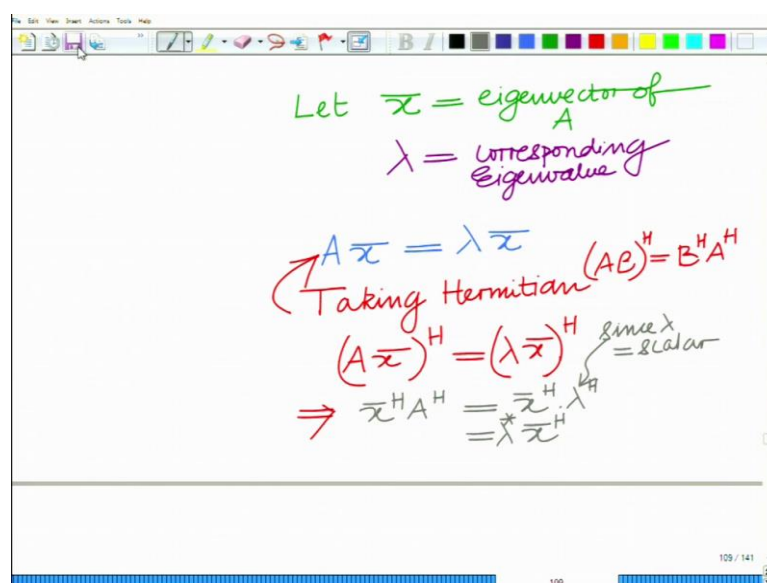 File Edit View Insert Actions Tools Help
B I
Let x̄ = eigenvector of
A
λ = corresponding
Eigenvalue
A x̄ = λ x̄
(AB)ᴴ = Bᴴ Aᴴ
Taking Hermitian
(A x̄)ᴴ = (λ x̄)ᴴ
since λ
= scalar
⇒ x̄ᴴ Aᴴ = x̄ᴴ . λᴴ
= λ* x̄ᴴ
109 / 141
109